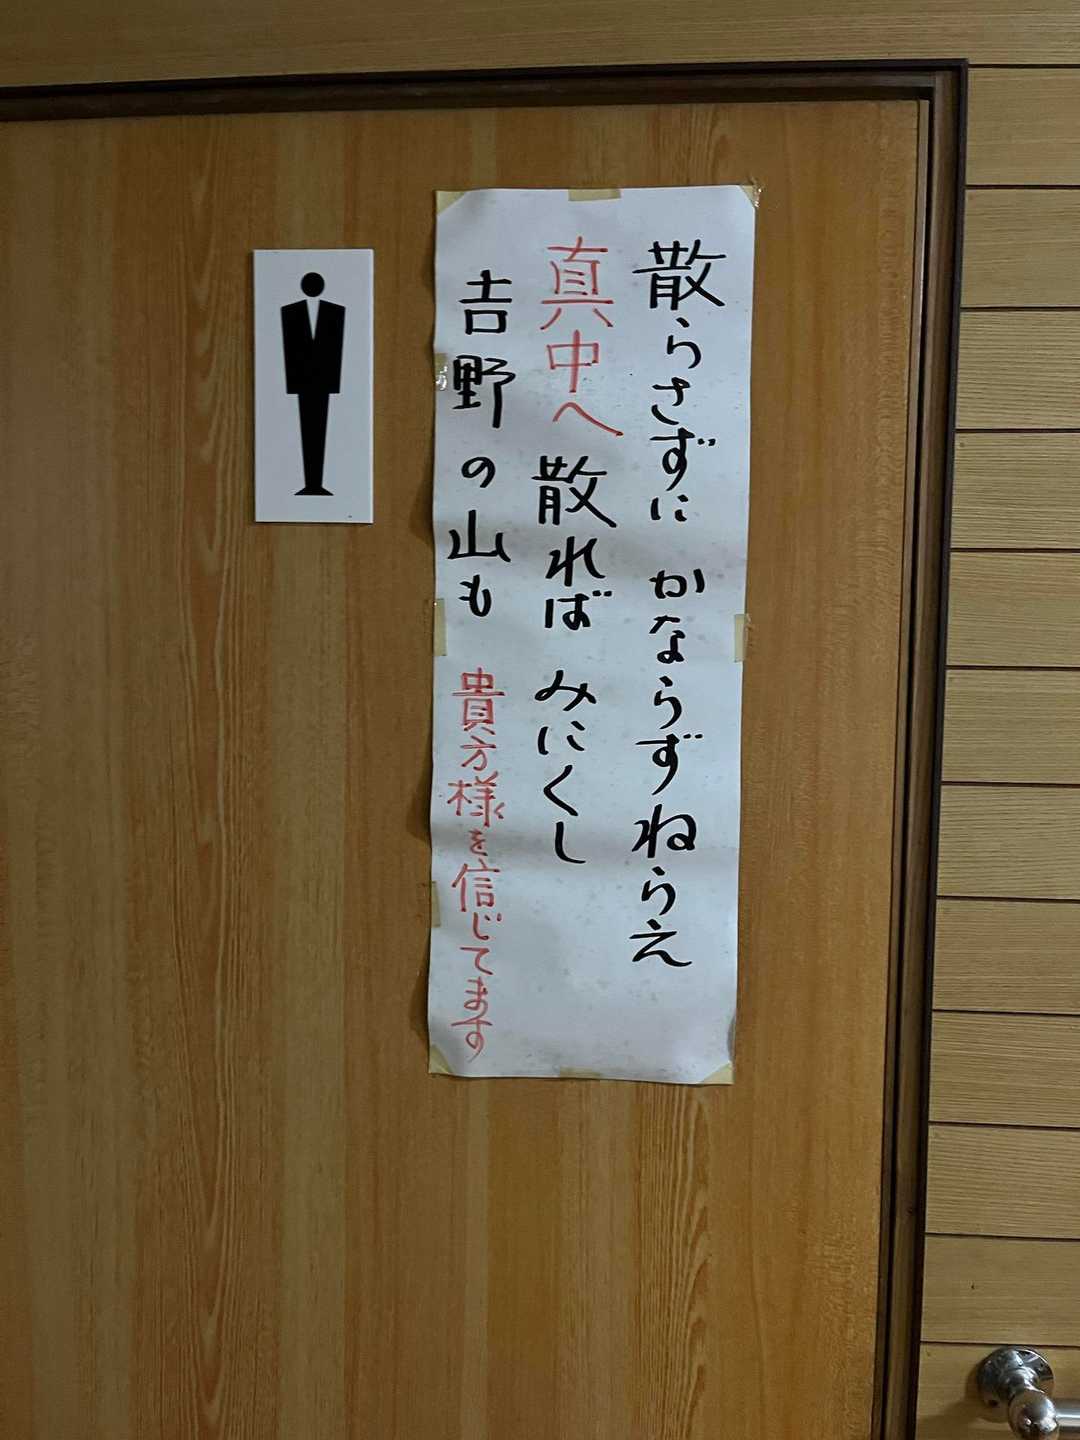 散らさずに かならずねらえ
真中へ 散れば みにくし
吉野の山も 貴方様を信じてます